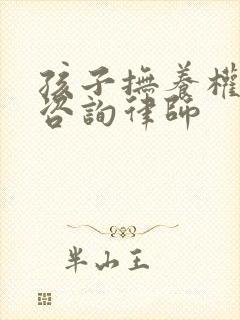 孩子撫養權
咨詢律師
半山王